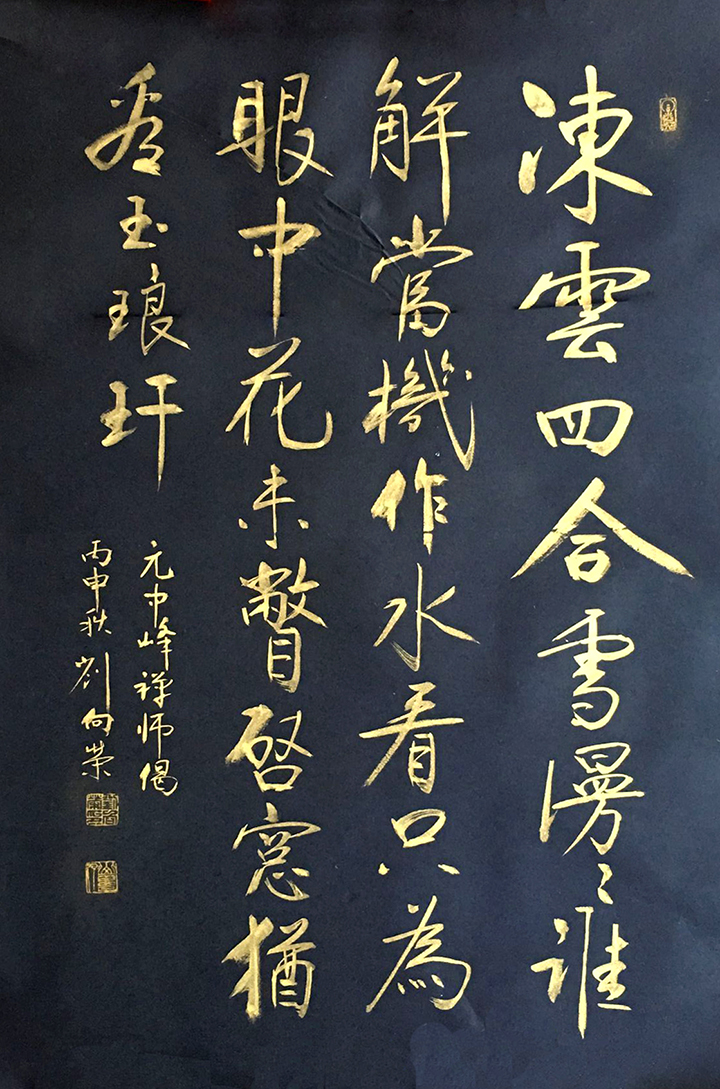 凍雲四合雪漫〻誰
解當機作水看只為
眼中花未瞥啓窓猶
看玉琅玕
元中峰禪師偈
丙申秋 劉向榮